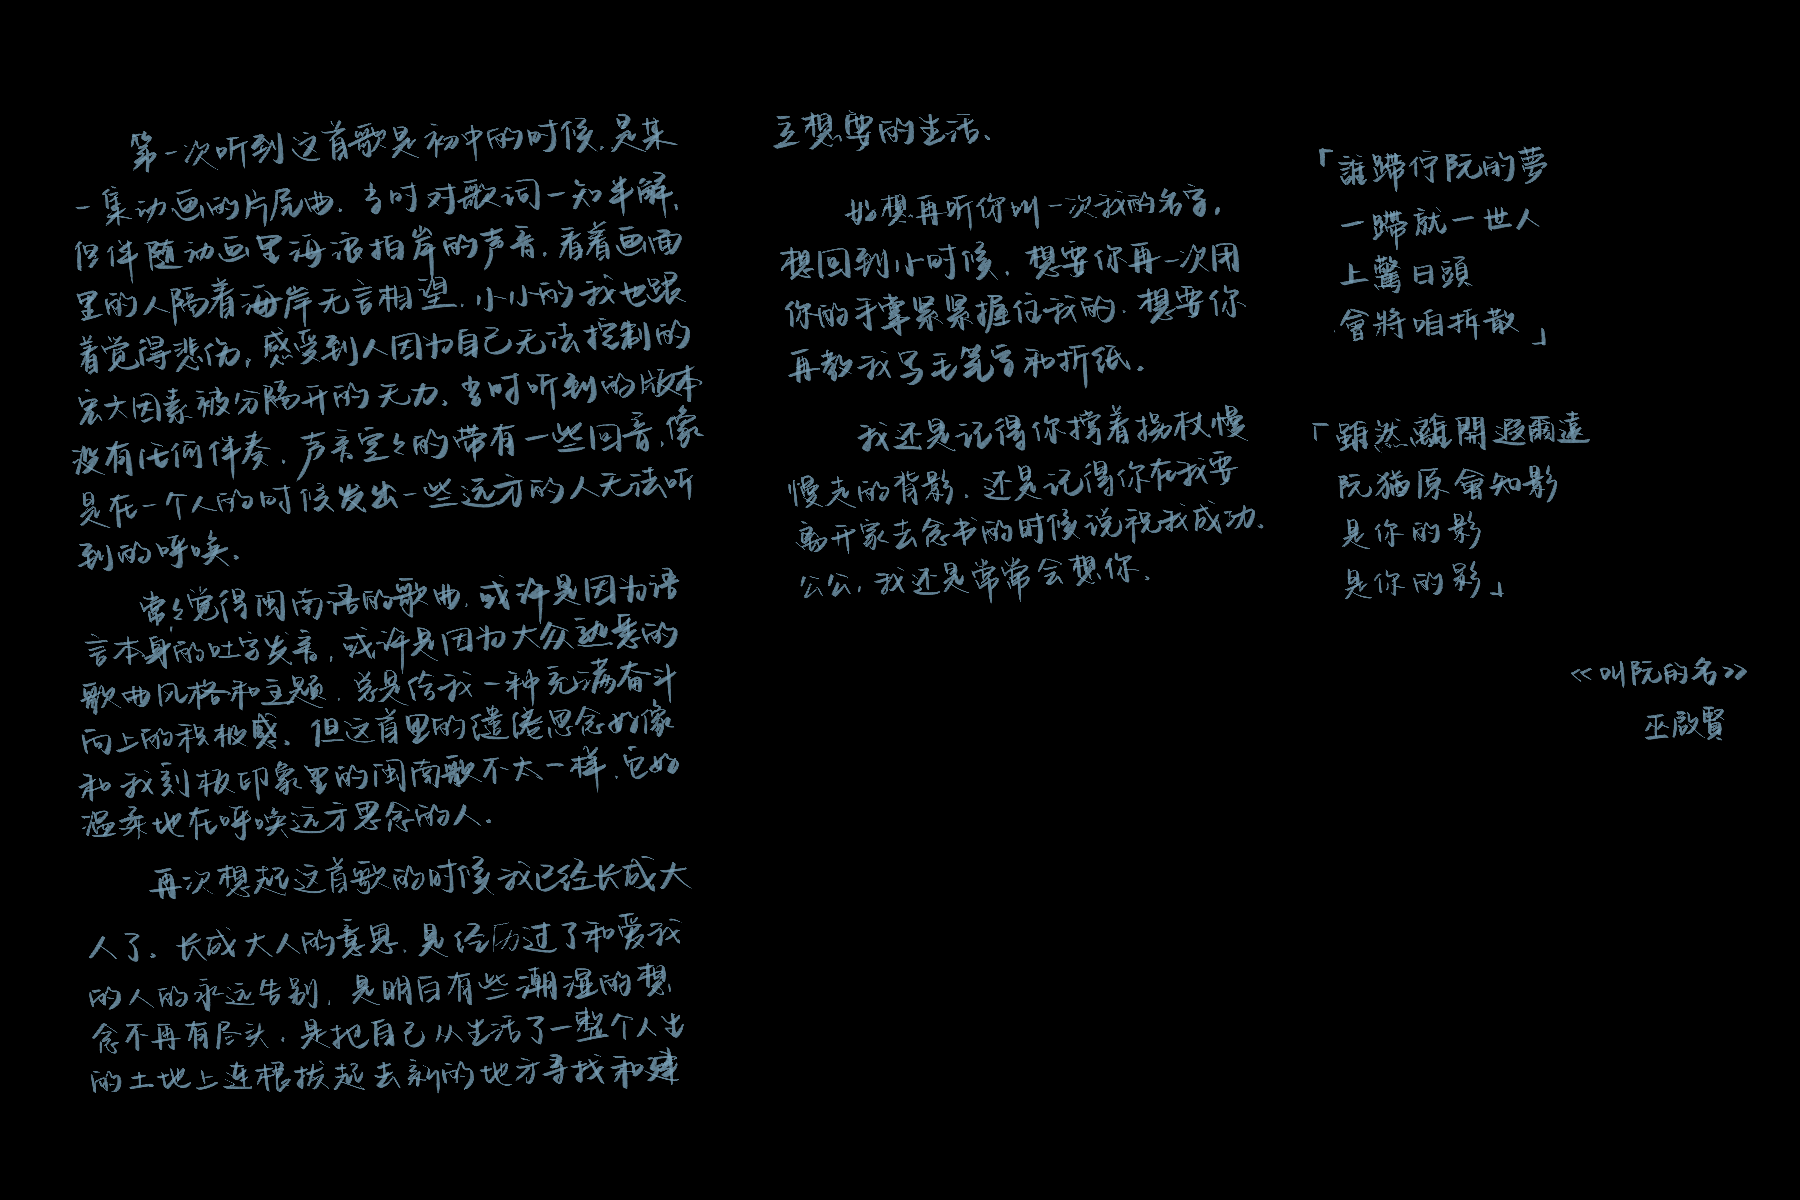 第一次听到这首歌是初中的时候,是某
一集动画的片尾曲.当时对歌词一知半解,
但伴随动画里海浪拍岸的声音,看着画面
里的人隔着海岸无言相望,小小的我也跟
着觉得悲伤,感受到人因为自己无法控制的
宏大因素被分隔开的无力.当时听到的版本
没有任何伴奏,声音空々的带有一些回音,像
是在一个人的时候发出一些远方的人无法听
到的呼唤.
常々觉得闽南语的歌曲,或许是因为语
言本身的吐字发音,或许是因为大众熟悉的
歌曲风格和主题,总是给我一种充满奋斗
向上的积极感.但这首里的缱绻思念好像
和我刻板印象里的闽南歌不太一样,它好
温柔地在呼唤远方思念的人.
再次想起这首歌的时候我已经长成大
人了.长成大人的意思,是经历过了和爱我
的人的永远告别,是明白有些潮湿的想
念不再有尽头,是把自己从生活了一整个人生
的土地上连根拔起去新的地方寻找和建
立想要的生活.
好想再听你叫一次我的名字,
想回到小时候,想要你再一次用
你的手掌紧紧握住我的.想要你
再教我写毛笔字和折纸.
我还是记得你撑着拐杖慢
慢走的背影,还是记得你在我要
离开家去念书的时候说祝我成功.
公公,我还是常常会想你.
「誰蹛佇阮的夢
一蹛就一世人
上驚日頭
會將咱拆散」
「雖然離開遐爾遠
阮猶原會知影
是你的影
是你的影」
《叫阮的名》
巫啟賢